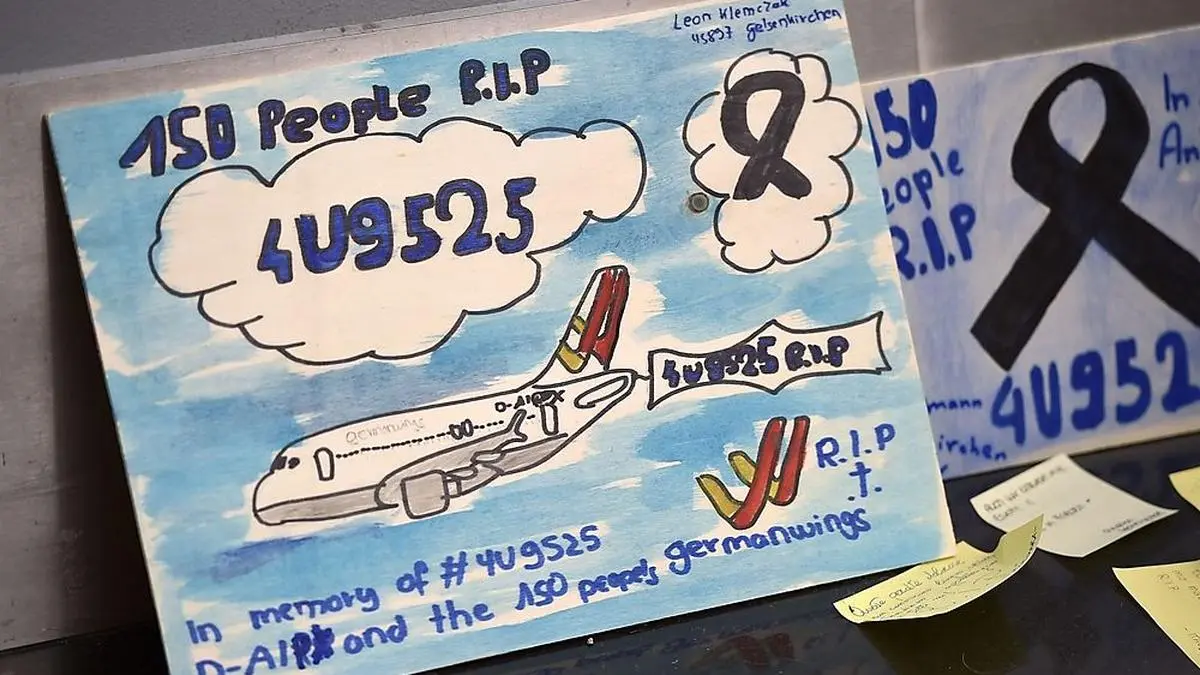 Leon Klemczak
45897 gelsenkirchen
150 People R.I.P
4U9525
germanwings
D-AIPX
4U9525 R.I.P
R.I.P
.t.
In memory of #4U9525
D-AIPX and the 150 people's germanwings
150
eople
R.I.P
In
An
4U952
mann
irchen